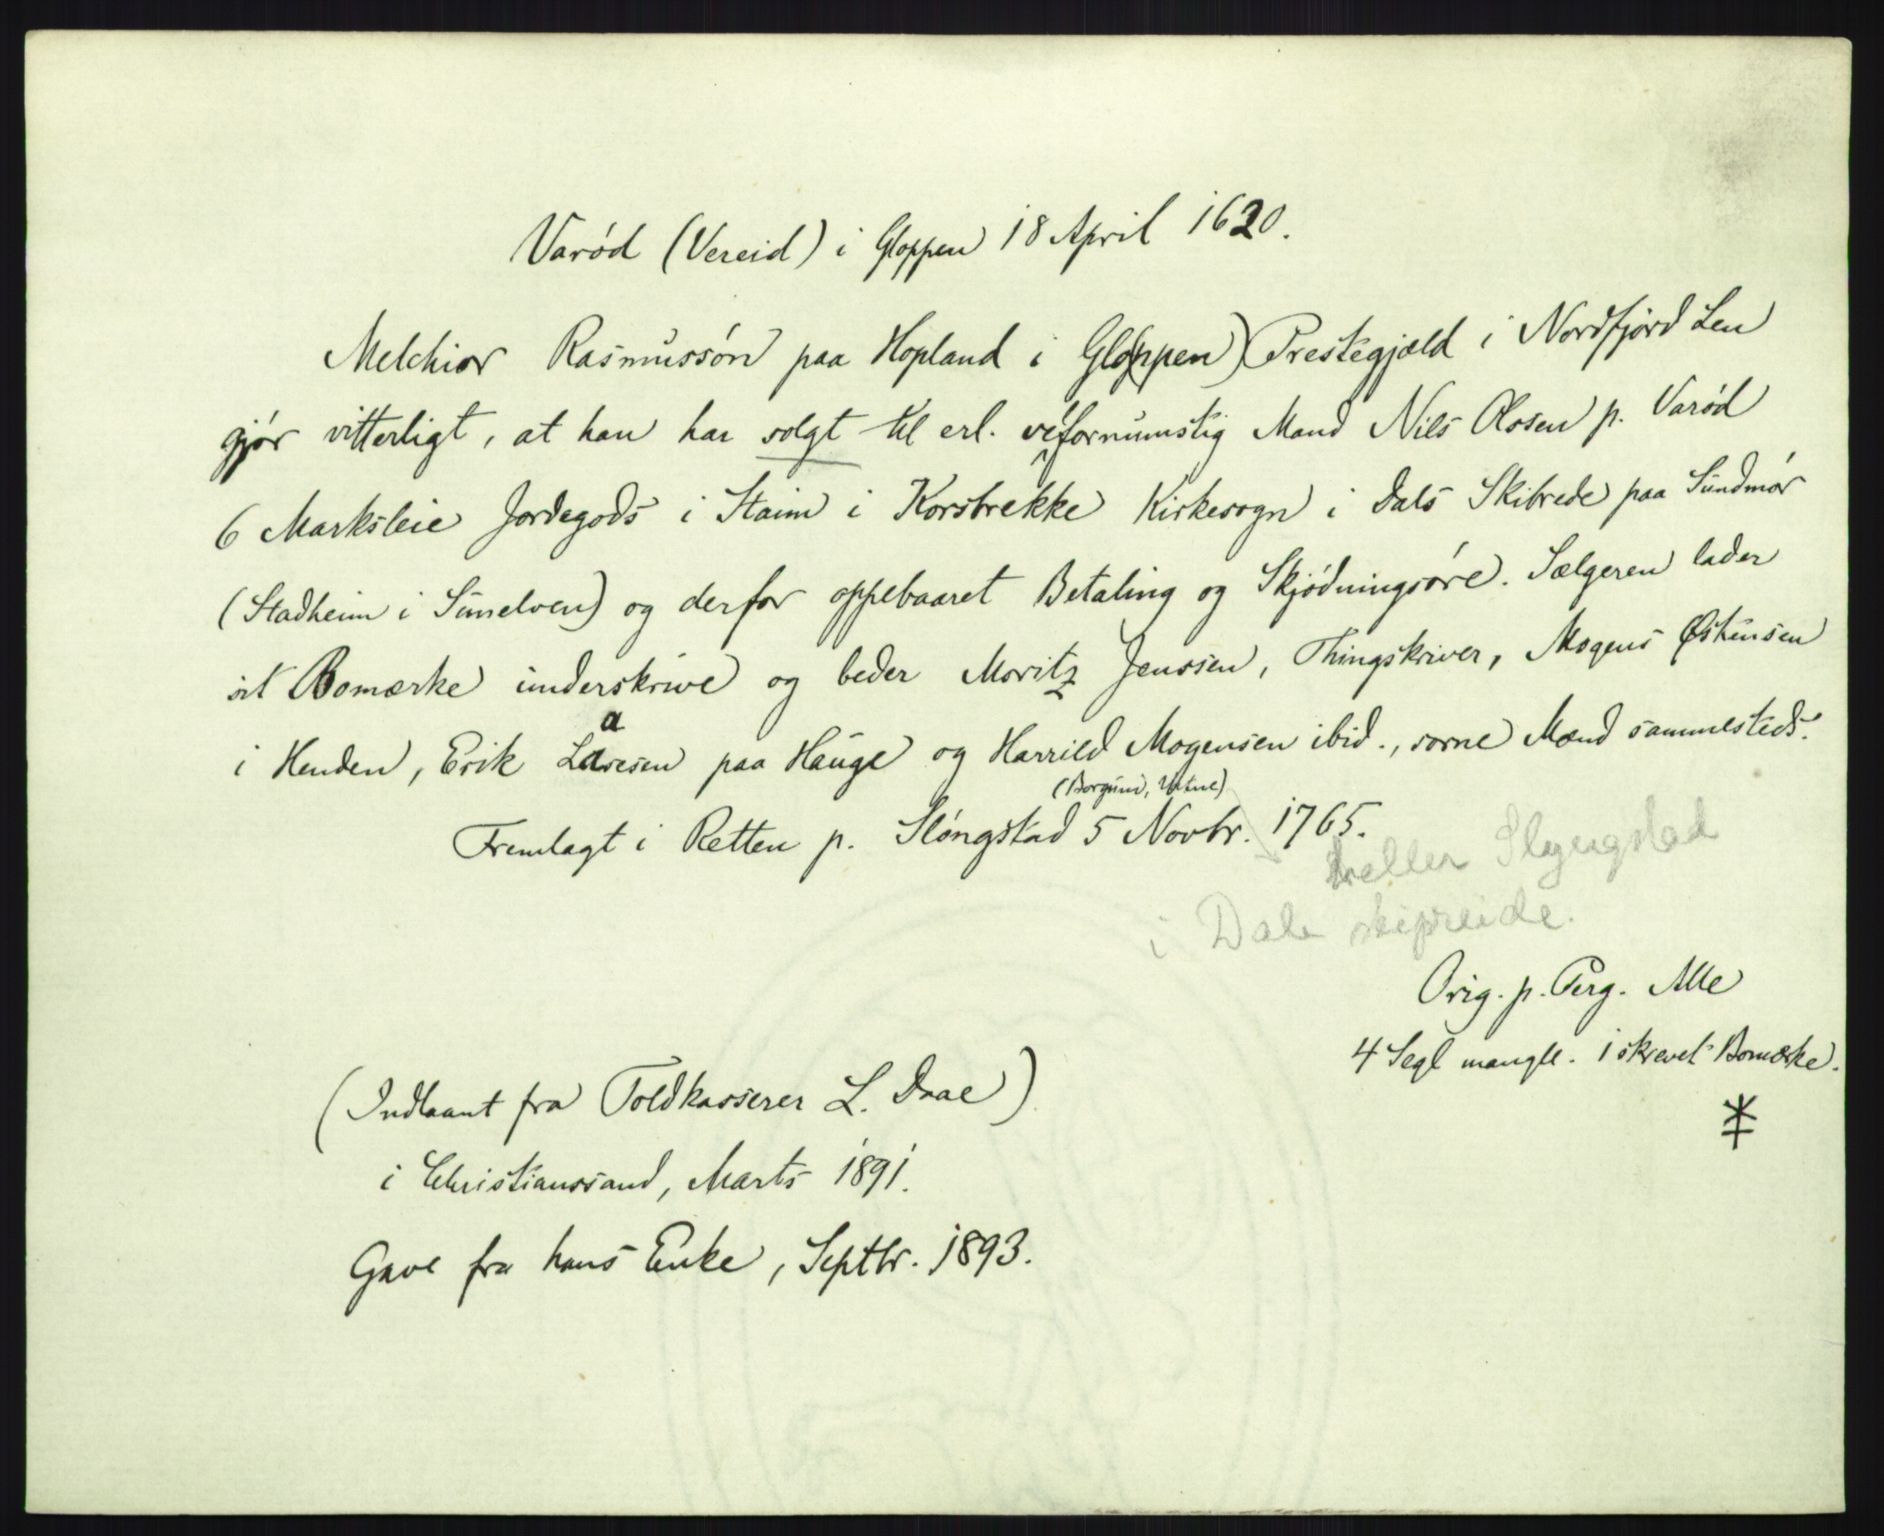 Varód (Vereid) i Gloppen 18 April 1620.
Melchior Rasmussón paa Hopland i Glo(ppen) Prestegjæld i Nordfjórd Len
gjór vitterligt, at han har solgt til erl. velfornumstig Mand Nils Olssen p. Varód
6 Marksleie Jordegods i Staim i Korsbrekke Kirkesogn i Dals Skibrede paa Sundmór
(Stadheim i Sunelven) og derfor oppebaaret Betaling og Skjódningsóre. Sælgeren lader
sit Bomærke underskrive og beder Moritz Jenssen, Thingskriver, Mogens Østensen
i Henden, Erik Laresen paa Hauge og Harrild Mogensen ibid., sorne Mænd sammesteds.
(Borgund, Vatne)
Fremlagt i Retten p. Slóngstad 5 Novbr. 1765.
heller Slyngstad
i Dale skipreide.
Orig. p. Perg. Alle
4 Segl mangle. 1 skrevet Bomærke.
(Indlaant fra Toldkasserer L. Daae)
i Christianssand, Marts 1891.
Gave fra hans Enke, Septbr. 1893.